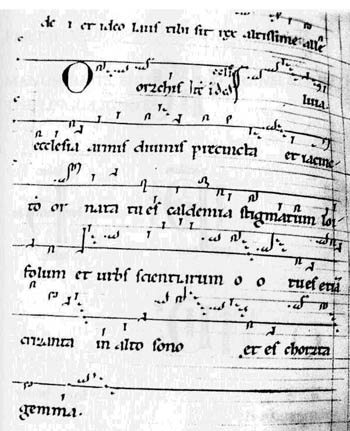 de i et ideo laus tibi sit rex altissime alle
O orzchis luia
ecclesia armis diuinis precincta et iacinc
to or nata tu es caldemia stigmatum loi
folum et urbs scientiarum o o tu es etiā
crizanta in alto sono et es chorzta
gemma.